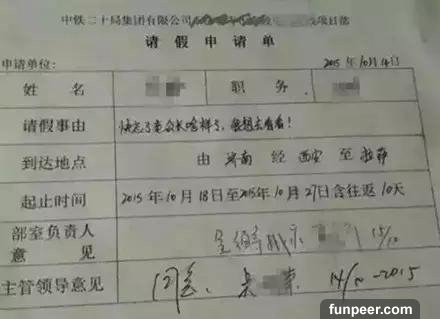 中铁二十局集团有限公司 项目部
请假申请单
申请单位: 2015年10月14日
姓名 职务
请假事由 快忘了老公长啥样了, 很想去看看!
到达地点 由 济南 经 西安 至 拉萨
起止时间 2015年10月18日至2015年10月27日含往返10天
部室负责人意见 15/10
主管领导意见 同意 14/10-2015
funpeer.com